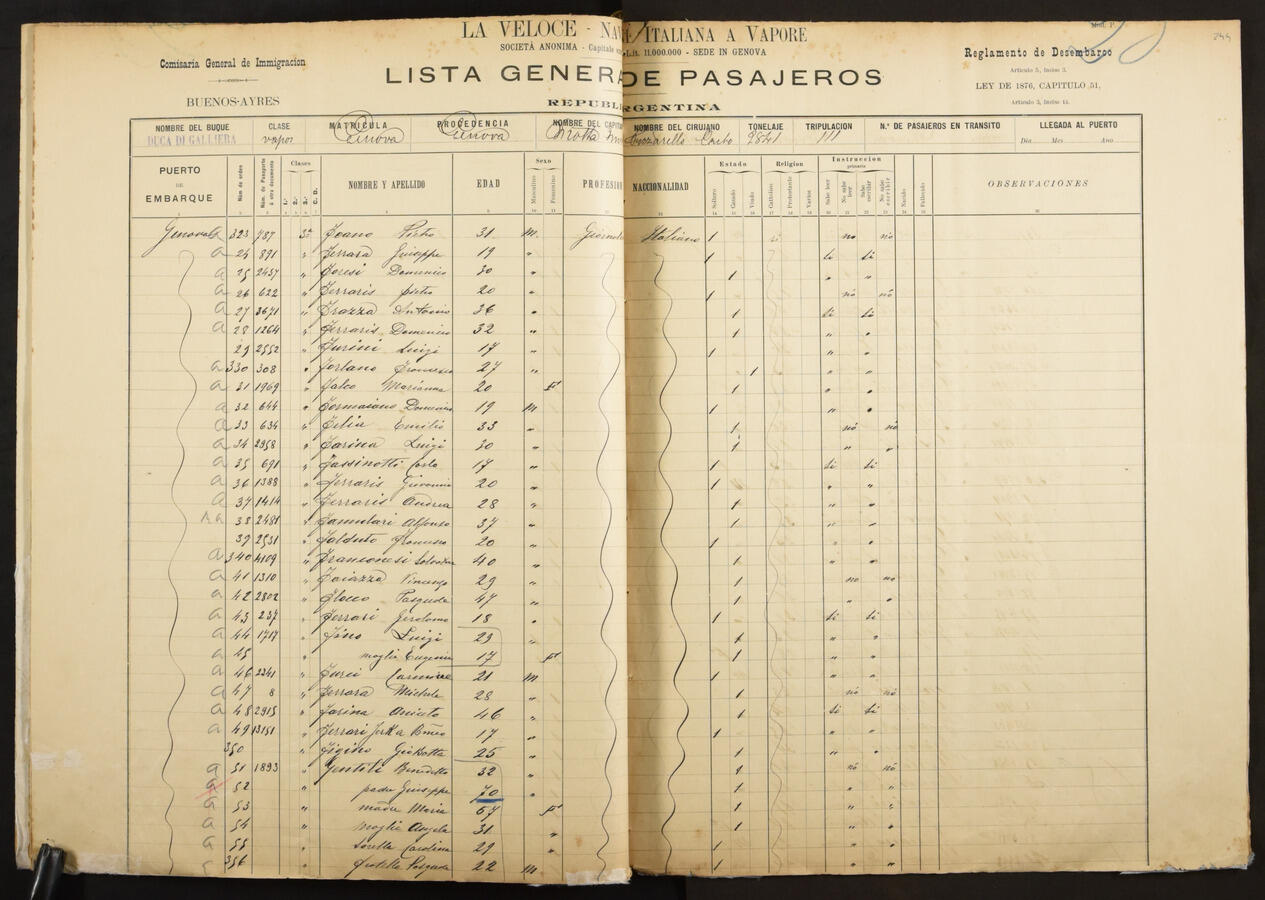 LA VELOCE - NAV ITALIANA A VAPORE
SOCIETÀ ANONIMA - Capitale Lit. 11.000.000 - SEDE IN GENOVA
Comisaria General de Immigracion
BUENOS-AYRES
LISTA GENER DE PASAJEROS
REPUBLI RGENTINA
Mod. P.
244
Reglamento de Desembarco
Articulo 5, Inciso 3.
LEY DE 1876, CAPITULO 51,
Articulo 3, Inciso 14.
NOMBRE DEL BUQUE CLASE MATRICULA PROCEDENCIA NOMBRE DEL CAPIT NOMBRE DEL CIRUJANO TONELAJE TRIPULACION N.º DE PASAJEROS EN TRANSITO LLEGADA AL PUERTO
DUCA DI GALLIERA vapor Genova Genova 2841 111 Dia Mes Año
PUERTO DE EMBARQUE Núm de orden Núm. de Pasaporte ú otro documento Clases 1.ª 2.ª 3.ª C. D. NOMBRE Y APELLIDO EDAD Sexo Masculino Femenino PROFESION NACCIONALIDAD Estado Soltero Casado Viudo Religion Catolica Protestante Varios Instruccion primaria Sabe leer No sabe leer Sabe escribir No sabe escribir Nacido Fallecido OBSERVACIONES
Genova a 323 787 3ª Pietro 31 M. Giornal Italiano 1 si no no
a 24 891 " Ferrara Giuseppe 19 " 1 si si
a 25 2457 " Domenico 30 " 1 " "
a 26 622 " Ferraris Pietro 20 " 1 no no
a 27 3671 " Antonio 36 " 1 si si
a 28 1264 " Ferraris Domenico 32 " 1 " "
29 2552 " Furini Luigi 17 " 1 " "
a 330 308 " Francesco 27 " 1 " "
a 31 1969 " Falco Marianna 20 F 1 " "
a 32 644 " Domenico 19 M 1 " "
a 33 634 " Emilio 33 " 1 no no
a 34 2958 " Farina Luigi 30 " 1 " "
a 35 691 " Fassinotti Carlo 17 " 1 si si
a 36 1388 " Ferraris Giovanni 20 " 1 " "
a 37 1414 " Ferraris Andrea 28 " 1 " "
38 2481 " Alfonso 37 " 1 " "
39 2531 " Francesco 20 " 1 " "
a 340 4109 " Franconesi Salvatore 40 " 1 " "
a 41 1310 " Faiazza Vincenzo 29 " 1 no no
a 42 2802 " Pasquale 47 " 1 " "
a 43 237 " Ferrari Gerolamo 18 " 1 si si
a 44 1717 " Fino Luigi 29 " 1 " "
a 45 " moglie Eugenia 17 F 1 " "
a 46 2241 " Carmine 21 M 1 " "
a 47 8 " Ferrara Michele 28 " 1 no no
a 48 2915 " Farina Aniceto 46 " 1 si si
a 49 13151 " Ferrari 17 " 1 " "
350 " Figino Gio Batta 25 " 1 " "
a 51 1893 " Gentili Benedetto 32 " 1 no no
a 52 " padre Giuseppe 70 " 1 " "
a 53 " madre Maria 67 F 1 " "
a 54 " moglie Angela 31 " 1 " "
a 55 " sorella Carolina 29 " " "
356 " fratello Pasquale 22 M " "